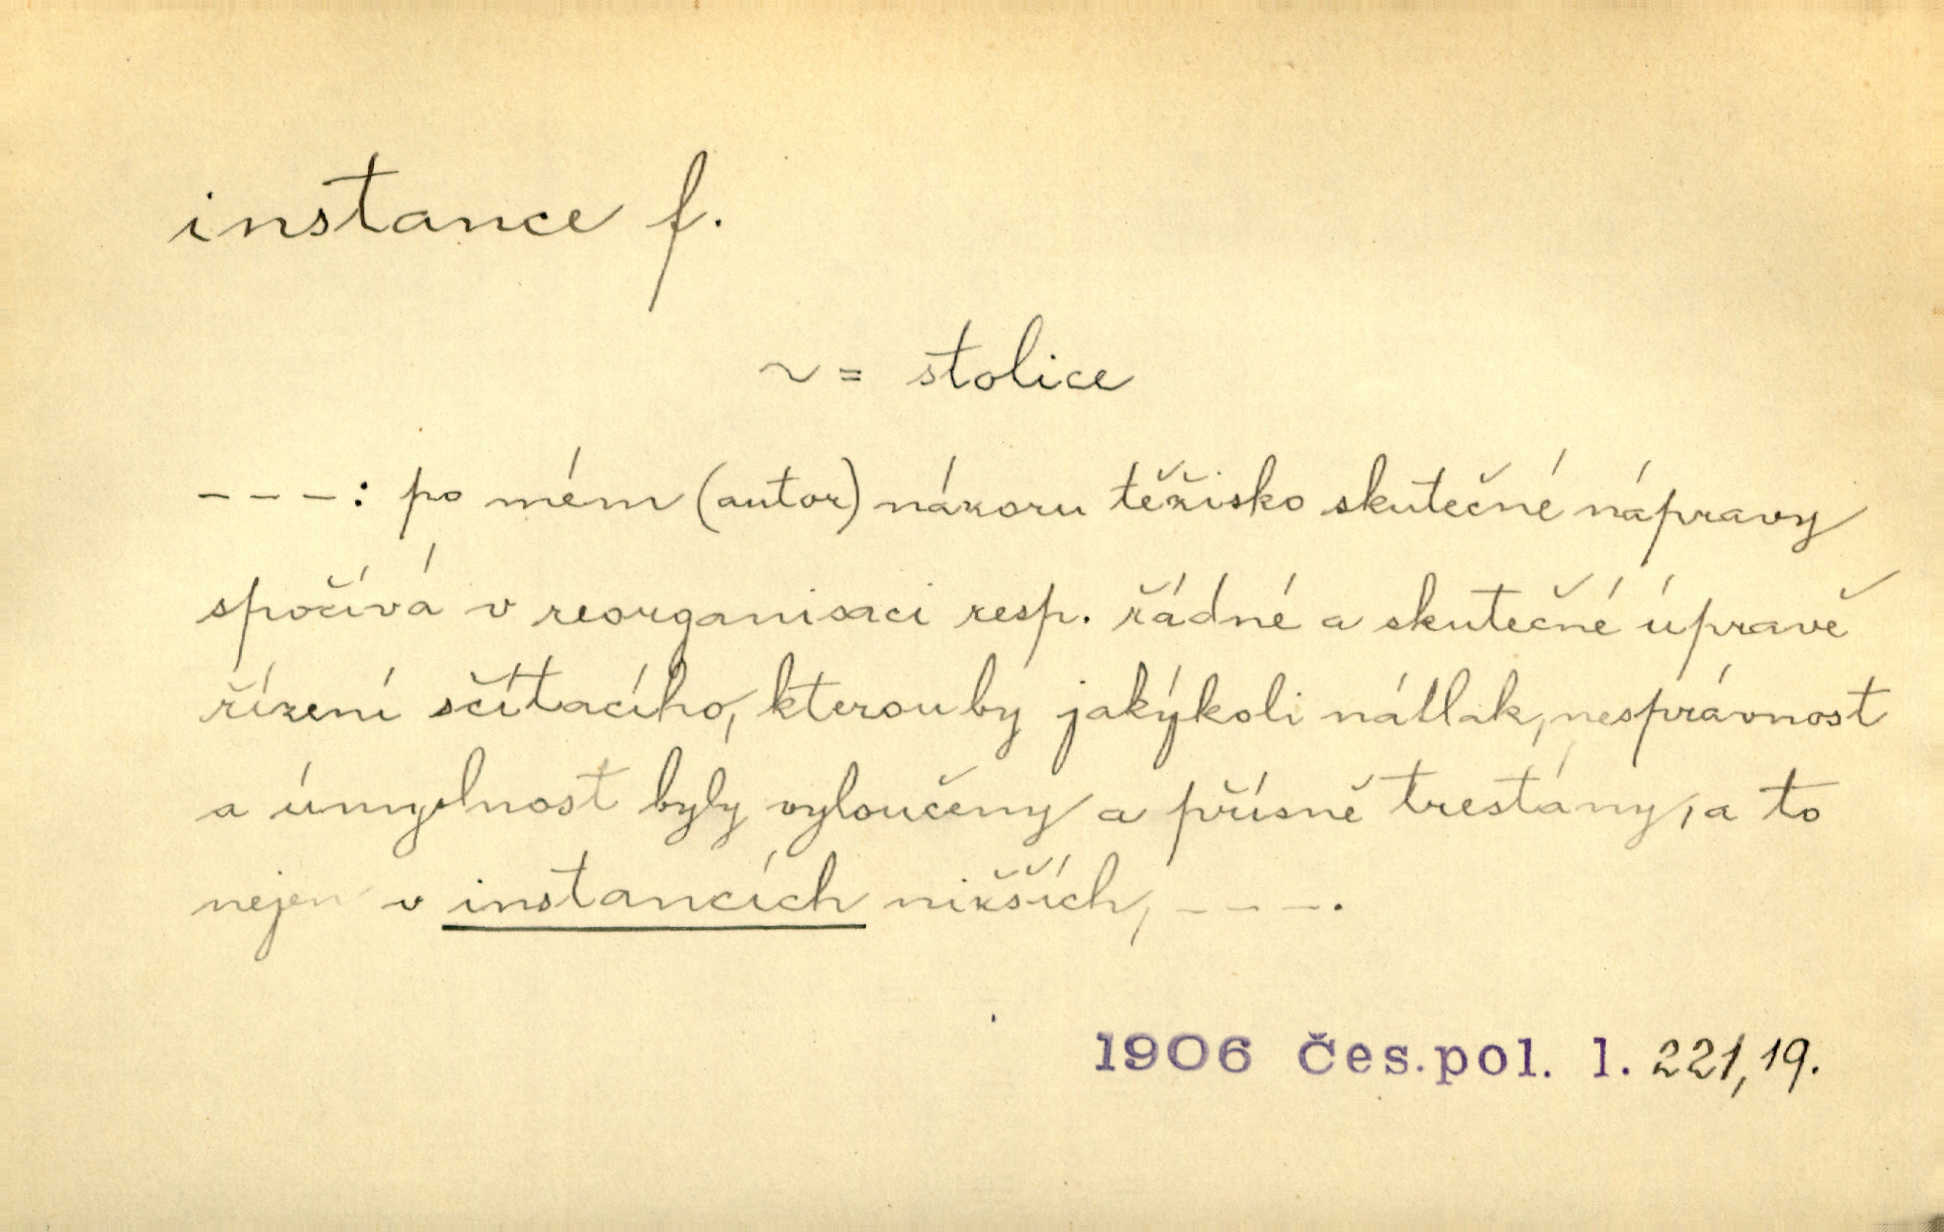 instance f.
~ = stolice
---: po mém (autor) názoru těžisko skutečné nápravy
spočívá v reorganisaci resp. řádné a skutečné úpravě
řízení sčítacího, kterouby jakýkoli nátlak, nesprávnost
a úmyslnost byly vyloučeny a přísně trestány, a to
nejen v instancích nižších, ---.
1906 Čes.pol. l. 221,19.